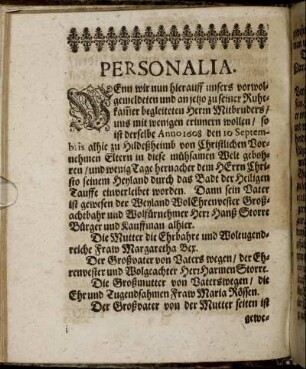 PERSONALIA.
WEnn wir nun hierauff unsers vorwol-
gemeldeten und an jetzo zu seiner Ruhe-
kammer begleiteten Herrn Mitbruders/
uns mit wenigen erinnern wollen/ so
ist derselbe Anno 1608 den 10 Septem-
bris alhie zu Hildeßheimb von Christlichen Vor-
nehmen Eltern in diese mühsamen Welt geboh-
ren/ und wenig Tage hernacher dem HErrn Chri-
sto seinem Heyland durch das Badt der Heiligen
Tauffe einverleibet worden. Dann sein Vater
ist gewesen der Weyland WolEhrenvester Groß-
achtbahr und Wolfürnehmer Herr Hanß Storre
Bürger und Kauffman alhier.
Die Mutter die Ehrbahre und Woltugend-
reiche Fraw Margaretha Bex.
Der Großvater von Vaters wegen/ der Eh-
renvester und Wolgeachter Herr Harmen Storre.
Die Großmutter von Vaterswegen/ die
Ehr und Tugendsahmen Fraw Maria Rössen.
Der Großvater von der Mutter seiten ist
gewe-